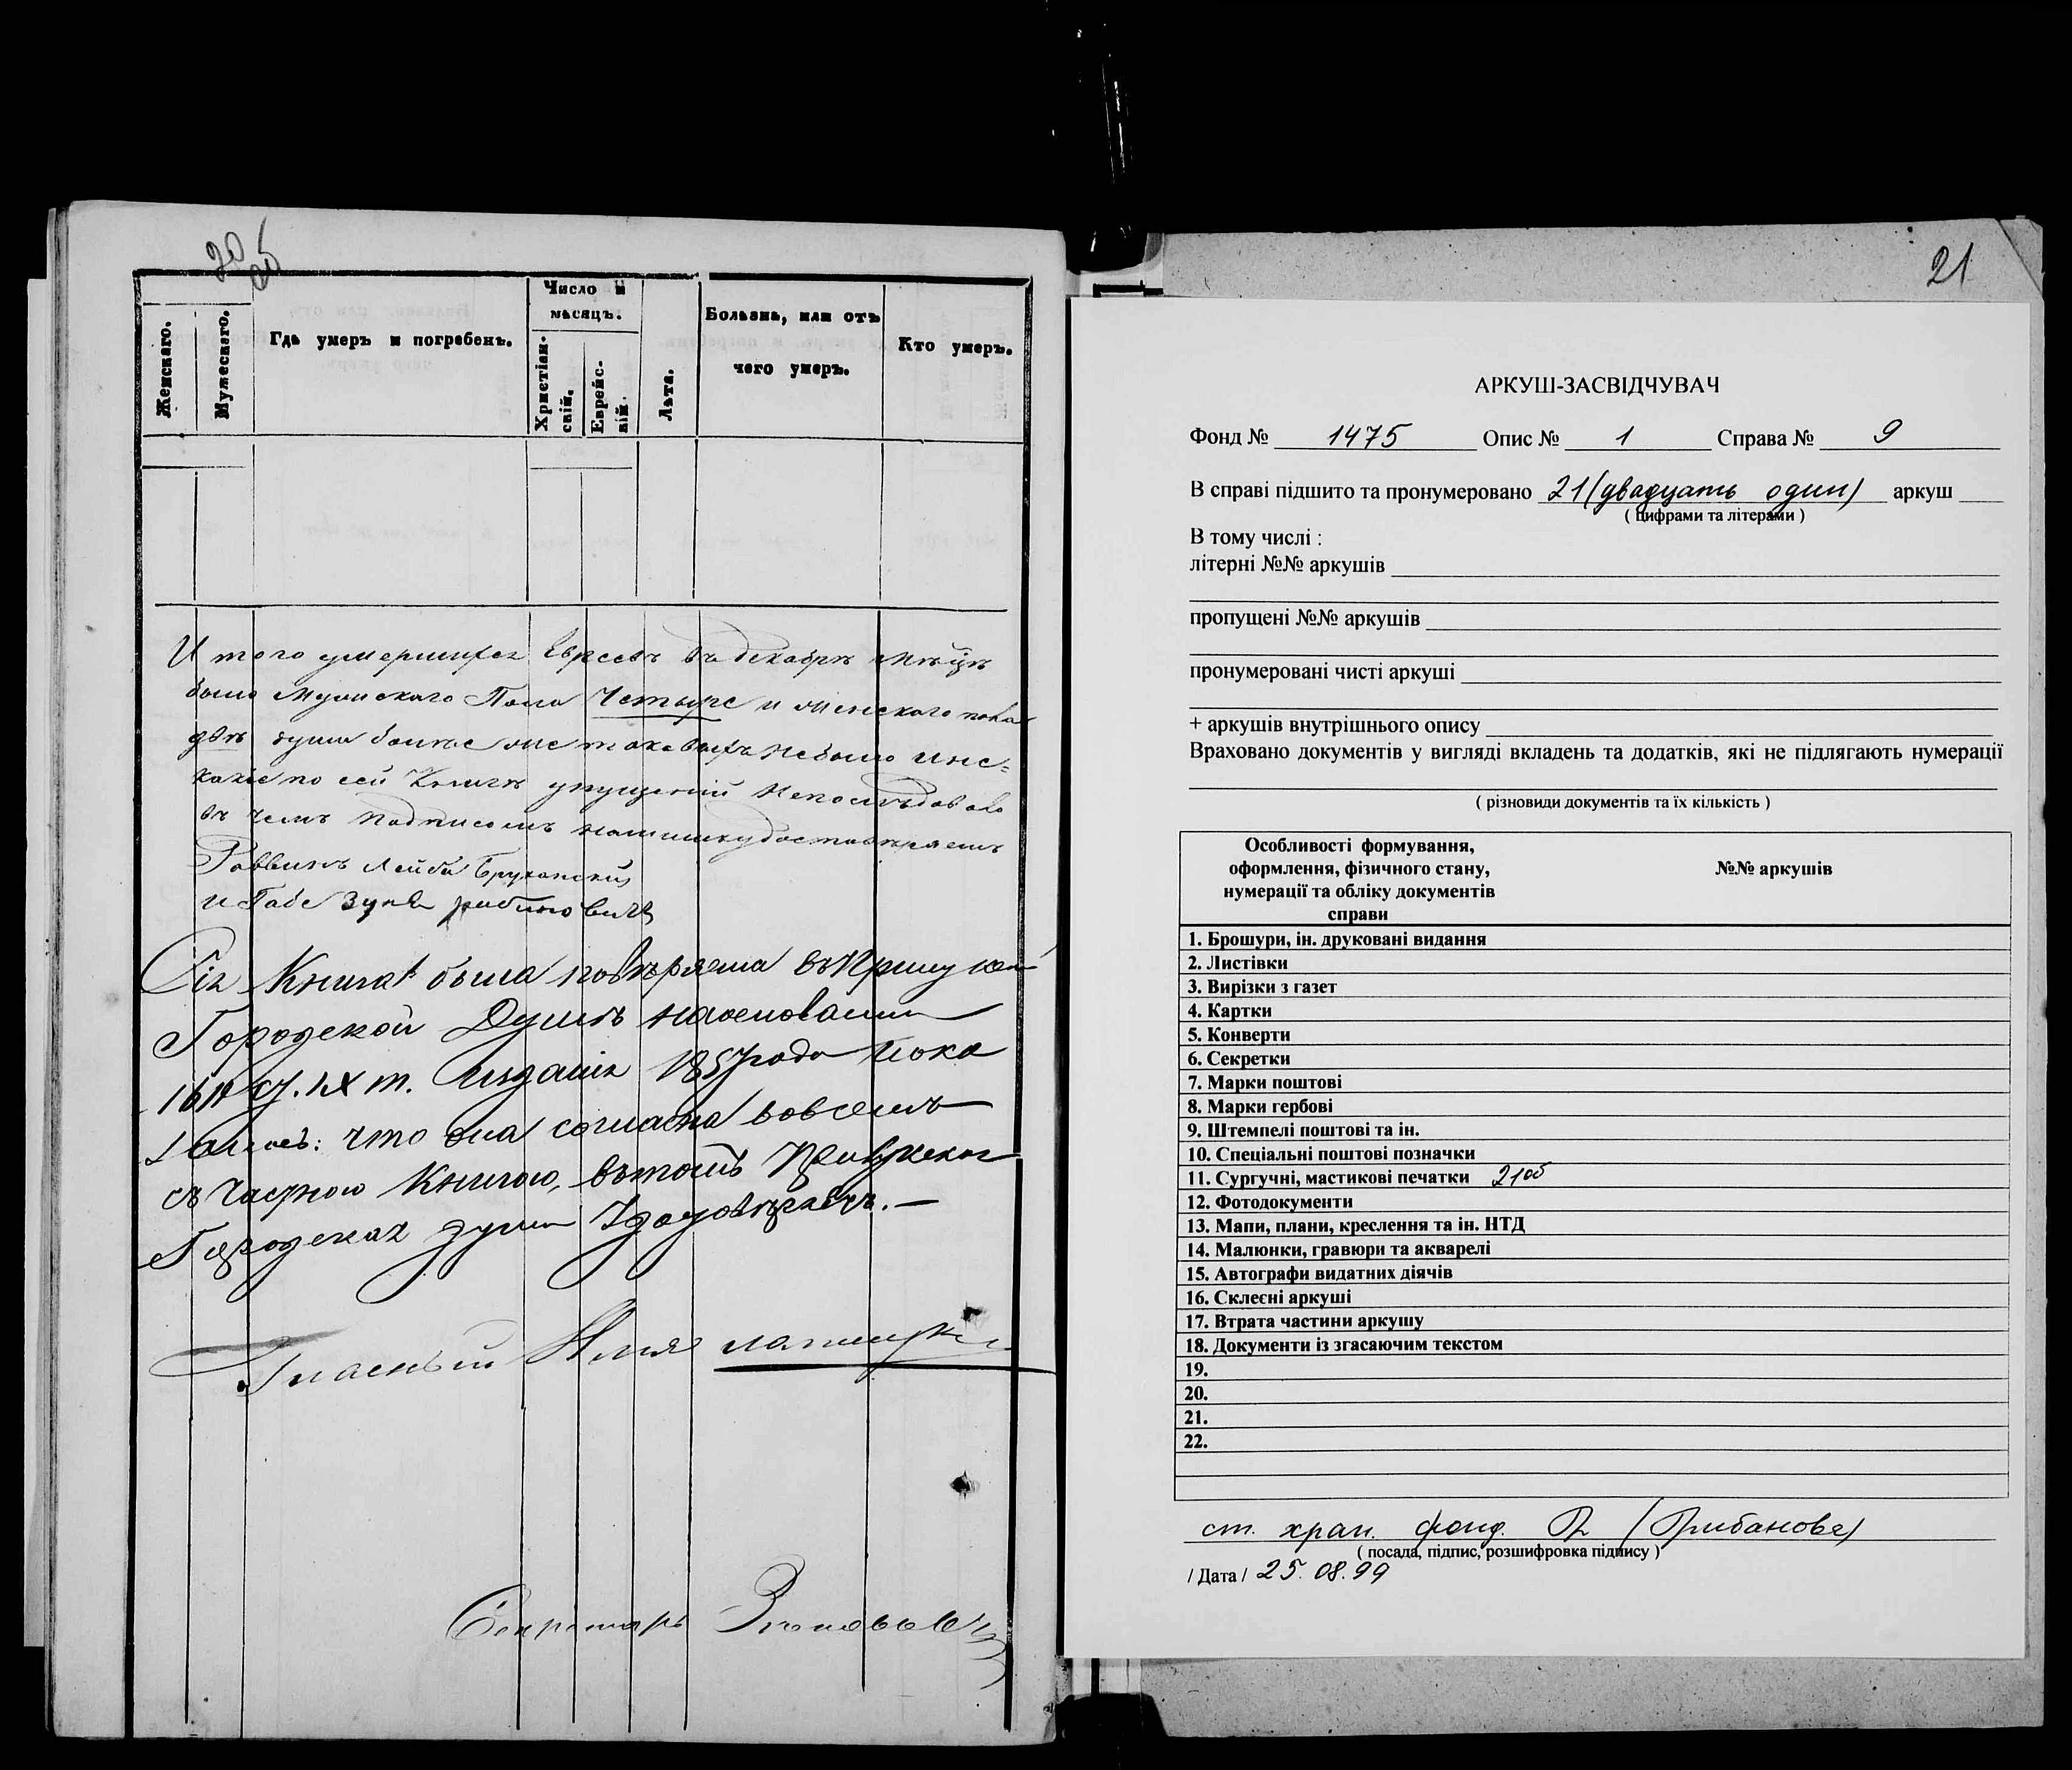 20 об
Женскаго.
Мужескаго.
Гдѣ умеръ и погребенъ.
Число и мѣсяцъ.
Христіан-
скій.
Еврейс-
кій.
Лѣта.
Болѣзнь, или отъ
чего умеръ.
Кто умеръ.
Итого умершихъ Евреевъ въ декабрѣ мѣцѣ
было мужскаго Пола Четыре и женскаго пола
двѣ души болѣе же таковыхъ небыло ине=
какіе по сей Книгѣ упущеній непослѣдовало
въ чемъ подписомъ нашимъ удостовѣряемъ
Раввинъ Лейба
и Габе рабиновичъ
Сія Книга была повѣряема въ
Городской Думѣ наоснованіи
ст. IX т. Изданія 1857 года пока
что она согласна вовсемъ
съ Частною Книгою, въ томъ
Городская дума Удостовѣряетъ. —
Гласный Илья
Секретарь
21
АРКУШ-ЗАСВІДЧУВАЧ
Фонд № 1475 Опис № 1 Справа № 9
В справі підшито та пронумеровано 21 (двадцать один) аркуш
( цифрами та літерами )
В тому числі :
літерні №№ аркушів
пропущені №№ аркушів
пронумеровані чисті аркуші
+ аркушів внутрішнього опису
Враховано документів у вигляді вкладень та додатків, які не підлягають нумерації
( різновиди документів та їх кількість )
Особливості формування,
оформлення, фізичного стану,
нумерації та обліку документів
справи
№№ аркушів
1. Брошури, ін. друковані видання
2. Листівки
3. Вирізки з газет
4. Картки
5. Конверти
6. Секретки
7. Марки поштові
8. Марки гербові
9. Штемпелі поштові та ін.
10. Спеціальні поштові позначки
11. Сургучні, мастикові печатки 21об
12. Фотодокументи
13. Мапи, плани, креслення та ін. НТД
14. Малюнки, гравюри та акварелі
15. Автографи видатних діячів
16. Склеєні аркуші
17. Втрата частини аркушу
18. Документи із згасаючим текстом
19.
20.
21.
22.
ст. хран. фонд. (Грибанова)
( посада, підпис, розшифровка підпису )
/ Дата / 25.08.99